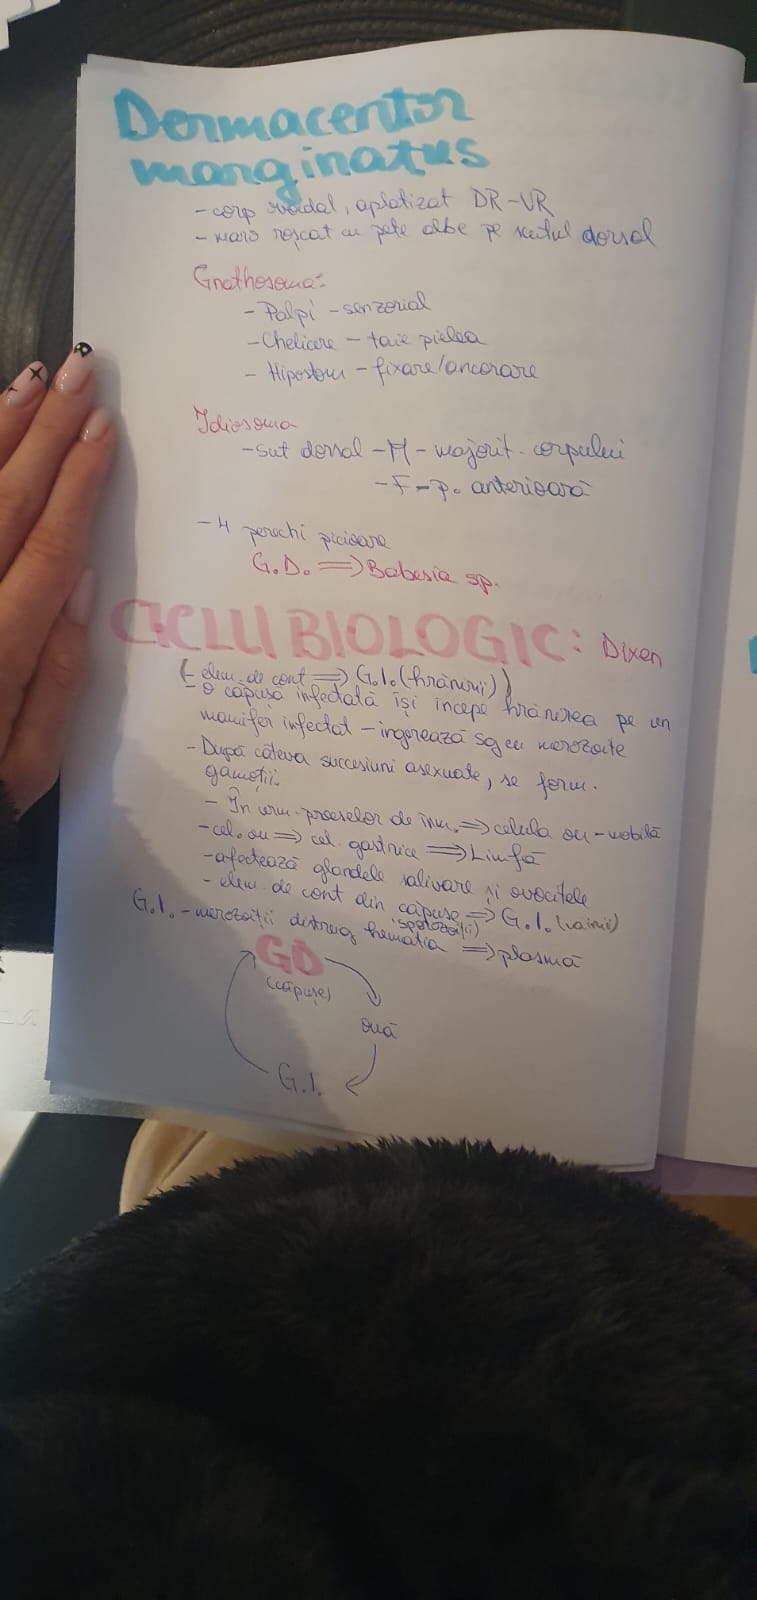 Dermacentor
marginatus
- corp ovoidal, aplatizat DR-VR
- maro roșcat cu pete albe pe scutul dorsal
Gnathosoma:
- Palpi - senzorial
- Chelicere - taie pielea
- Hipostom - fixare/ancorare
Idiosoma
- Sut dorsal - M - majorit. corpului
- F - p. anterioară
- 4 perechi picioare
G.D. => Babesia sp.
CICLU BIOLOGIC: Dixen
(- elem. de cont => G.I. (hrănirii))
- O căpușă infectată își începe hrănirea pe un
mamifer infectat - ingerează sg cu merozoite
- După câteva succesiuni asexuate, se form.
gamoții.
- În urm. proceselor de înm. => celula ou - mobilă
- cel. ou => cel. gastrice => Limfă
- afectează glandele salivare și ovocitele
- elem. de cont din căpușe => G.I. (câinii)
(sporozoiții)
G.I. - merozoiții distrug hematia => plasmă
GD
(căpușe)
ouă
G.I.